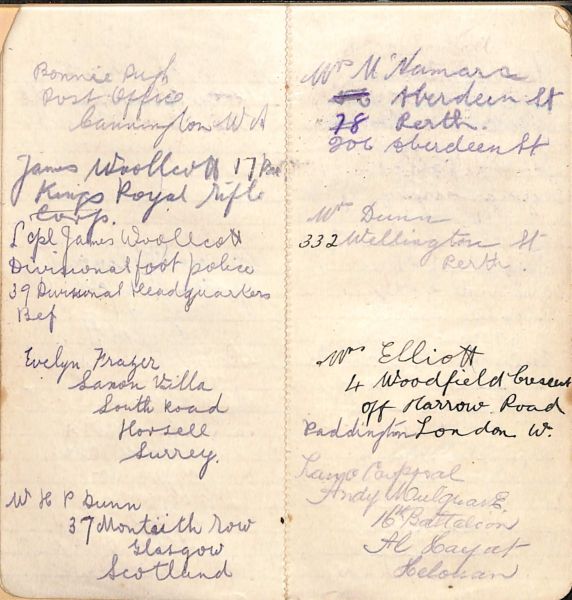 Bonnie Pugh
Post Office
Cannington W A
James Woollcott 17 Bat
Kings Royal Rifle
Corp.
L cpl James Woollcott
Divisional foot police
39 Divisional Headquarters
Bef
Evelyn Frazer
Sanon Villa
South Road
Horsell
Surrey.
W H P Dunn
37 Monteith Row
Glasgow
Scotland
Mrs McNamara
Aberdeen St
78 Perth.
206 Aberdeen St
Mrs Dunn
332 Wellington St
Perth.
Mrs Elliott
4 Woodfield Crescent
off Harrow Road
Paddington London W.
Lance Corporal
Andy
16th Battalion
Al Hayat
Helouan.